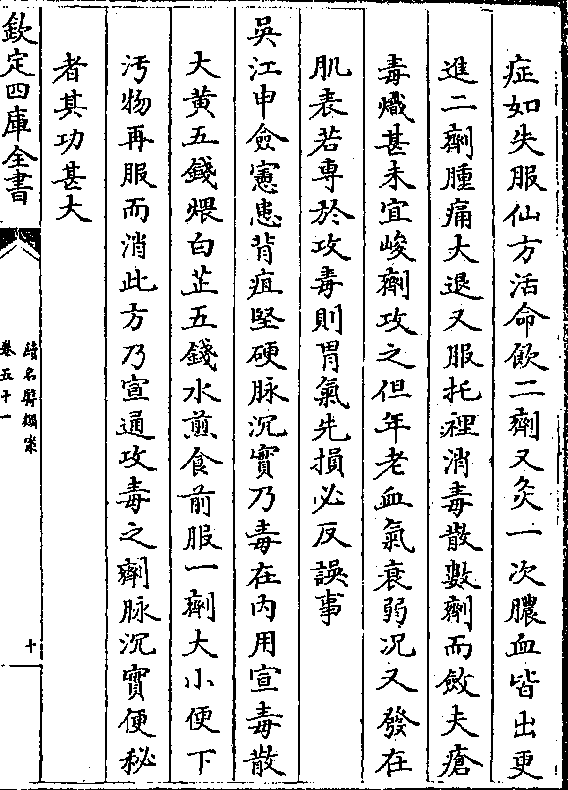 症如失服仙方活命飲二劑又灸一次膿血皆出更
進二劑腫痛大退又服托裡消毒散數劑而斂夫瘡
毒熾甚未宜峻劑攻之但年老血氣衰弱况又發在
肌表若專於攻毒則胃氣先損必反誤事
吳江申僉憲患背疽堅硬脉沉實乃毒在内用宣毒散
大黄五錢煨白芷五錢水煎食前服一劑大小便下
汚物再服而消此方乃宣通攻毒之劑脉沉實便秘
者其功甚大
欽定四庫全書
續名醫類案
卷五十一
十